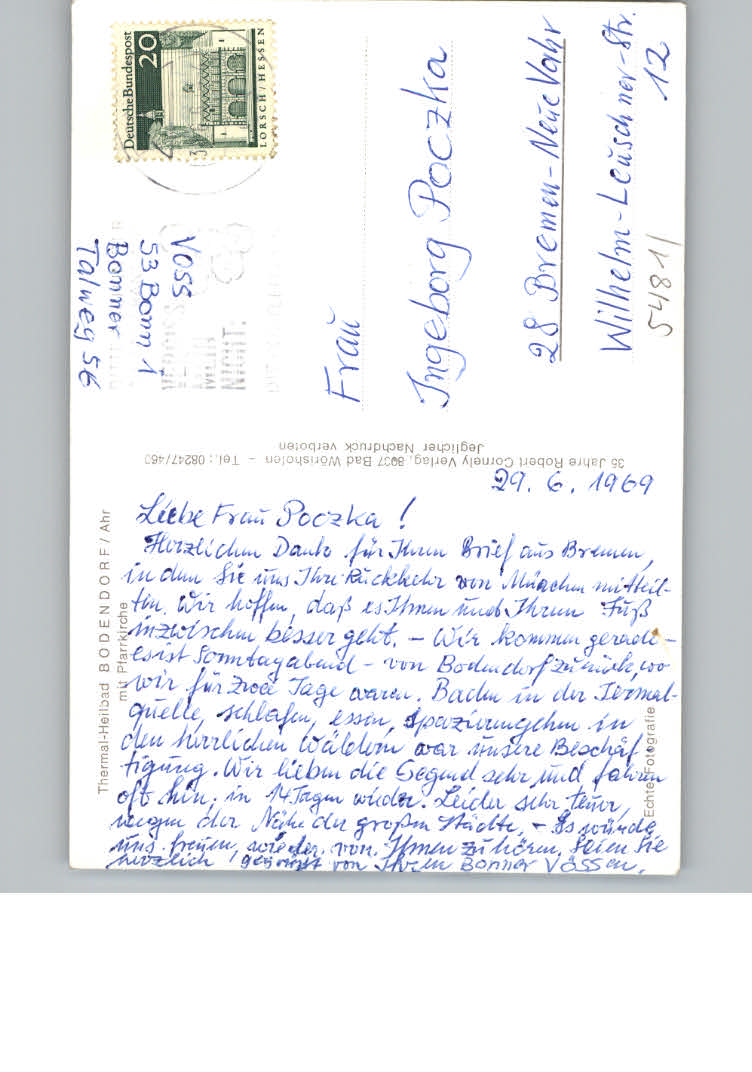 Deutsche Bundespost
20
LORSCH/HESSEN
Voss
53 Bonn 1
Bonner
Talweg 56
NICHT.
Frau
Ingeborg Poczka
28 Bremen-Neue Vahr
Wilhelm-Leuschner-Str.
12
5481/
35 Jahre Robert Cornely Verlag, 8937 Bad Wörishofen – Tel.: 08247/460
Jeglicher Nachdruck verboten
Thermal-Heilbad BODENDORF / Ahr
mit Pfarrkirche
Echte Fotografie
29. 6. 1969
Liebe Frau Poczka!
Herzlichen Dank für Ihren Brief aus Bremen,
in dem Sie uns Ihre Rückkehr von München mitteil-
ten. Wir hoffen, daß es Ihnen und Ihrem Fuß
inzwischen besser geht. – Wir kommen gerade –
es ist Sonntagabend – von Bodendorf zurück, wo
wir für zwei Tage waren. Baden in der Termal-
quelle, schlafen, essen, spazierengehen in
den herrlichen Wäldern war unsere Beschäf-
tigung. Wir lieben die Gegend sehr und fahren
oft hin, in 14 Tagen wieder. Leider sehr teuer,
wegen der Nähe der großen Städte. – Es würde
uns freuen, wieder von Ihnen zu hören. Seien Sie
herzlich gegrüsst von Ihren Bonner Vössen.